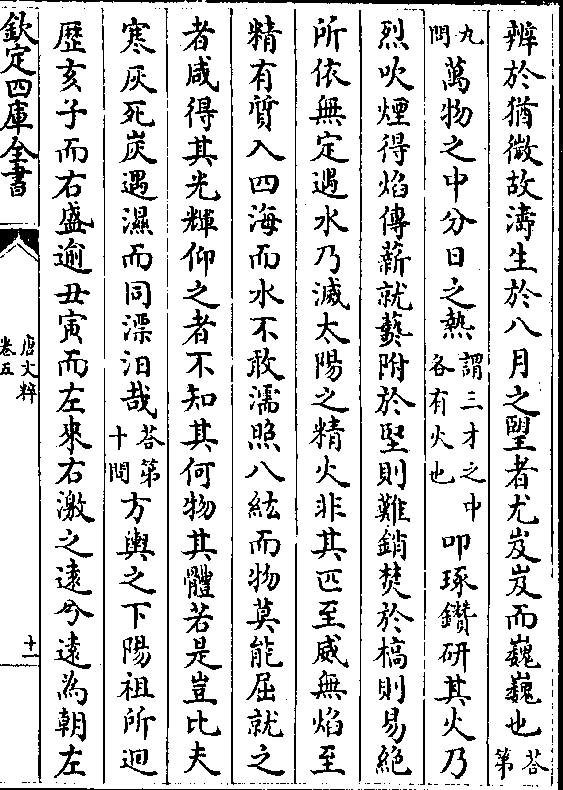 辨於猶微故濤生於八月之朢者尤岌岌而巍巍也答第
九問萬物之中分日之熱謂三才之中各有火也叩琢鑽研其火乃
烈吹煙得焰傳薪就爇附於堅則難銷焚於槁則易絶
所依無定遇水乃滅太陽之精火非其匹至威無焰至
精有質入四海而水不敢濡照八紘而物莫能屈就之
者咸得其光輝仰之者不知其何物其體若是豈比夫
寒灰死炭遇濕而同漂汨哉答第十問方輿之下陽祖所迴
歴亥子而右盛逾丑寅而左來右激之遠兮遠為朝左
欽定四庫全書
唐文粹
卷五
十一